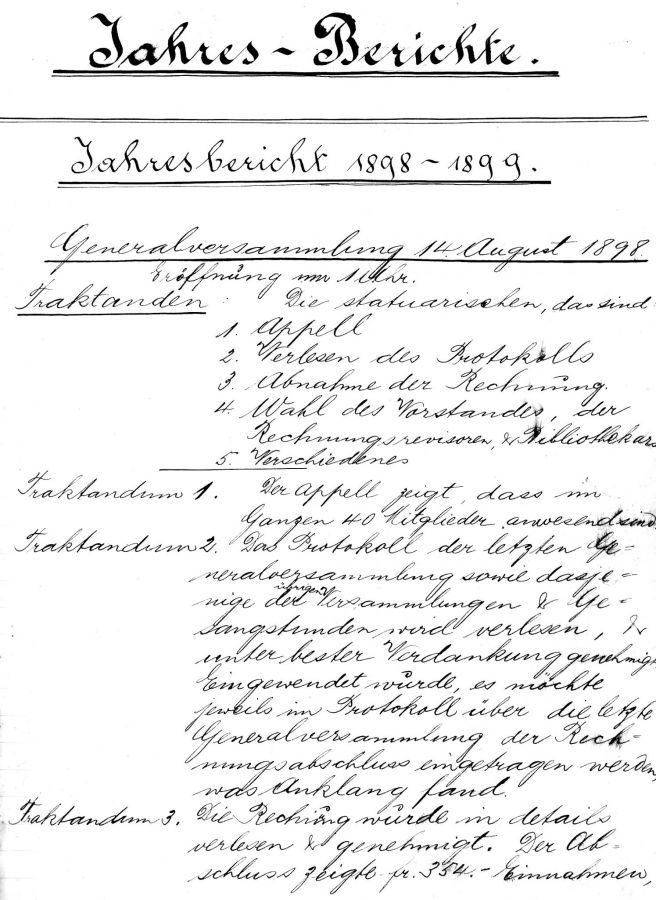 Jahres-Berichte.
Jahresbericht 1898-1899.
Generalversammlung 14. August 1898.
Eröffnung um 1 Uhr.
Traktanden: Die statuarischen, das sind
1. Appell
2. Verlesen des Protokolls
3. Abnahme der Rechnung.
4. Wahl des Vorstandes, der
Rechnungsrevisoren, & Bibliothekars
5. Verschiedenes
Traktandum 1. Der Appell zeigt, dass im
Ganzen 40 Mitglieder anwesend sind.
Traktandum 2. Das Protokoll der letzten Ge-
neralversammlung sowie dasje-
nige der übrigen Versammlungen & Ge-
sangstunden wird verlesen, &
unter bester Verdankung genehmigt.
Eingewendet wurde, es möchte
jeweils im Protokoll über die letzte
Generalversammlung der Rech-
nungsabschluss eingetragen werden,
was Anklang fand.
Traktandum 3. Die Rechnung wurde in details
verlesen & genehmigt. Der Ab-
schluss zeigte fr. 354.- Einnahmen,